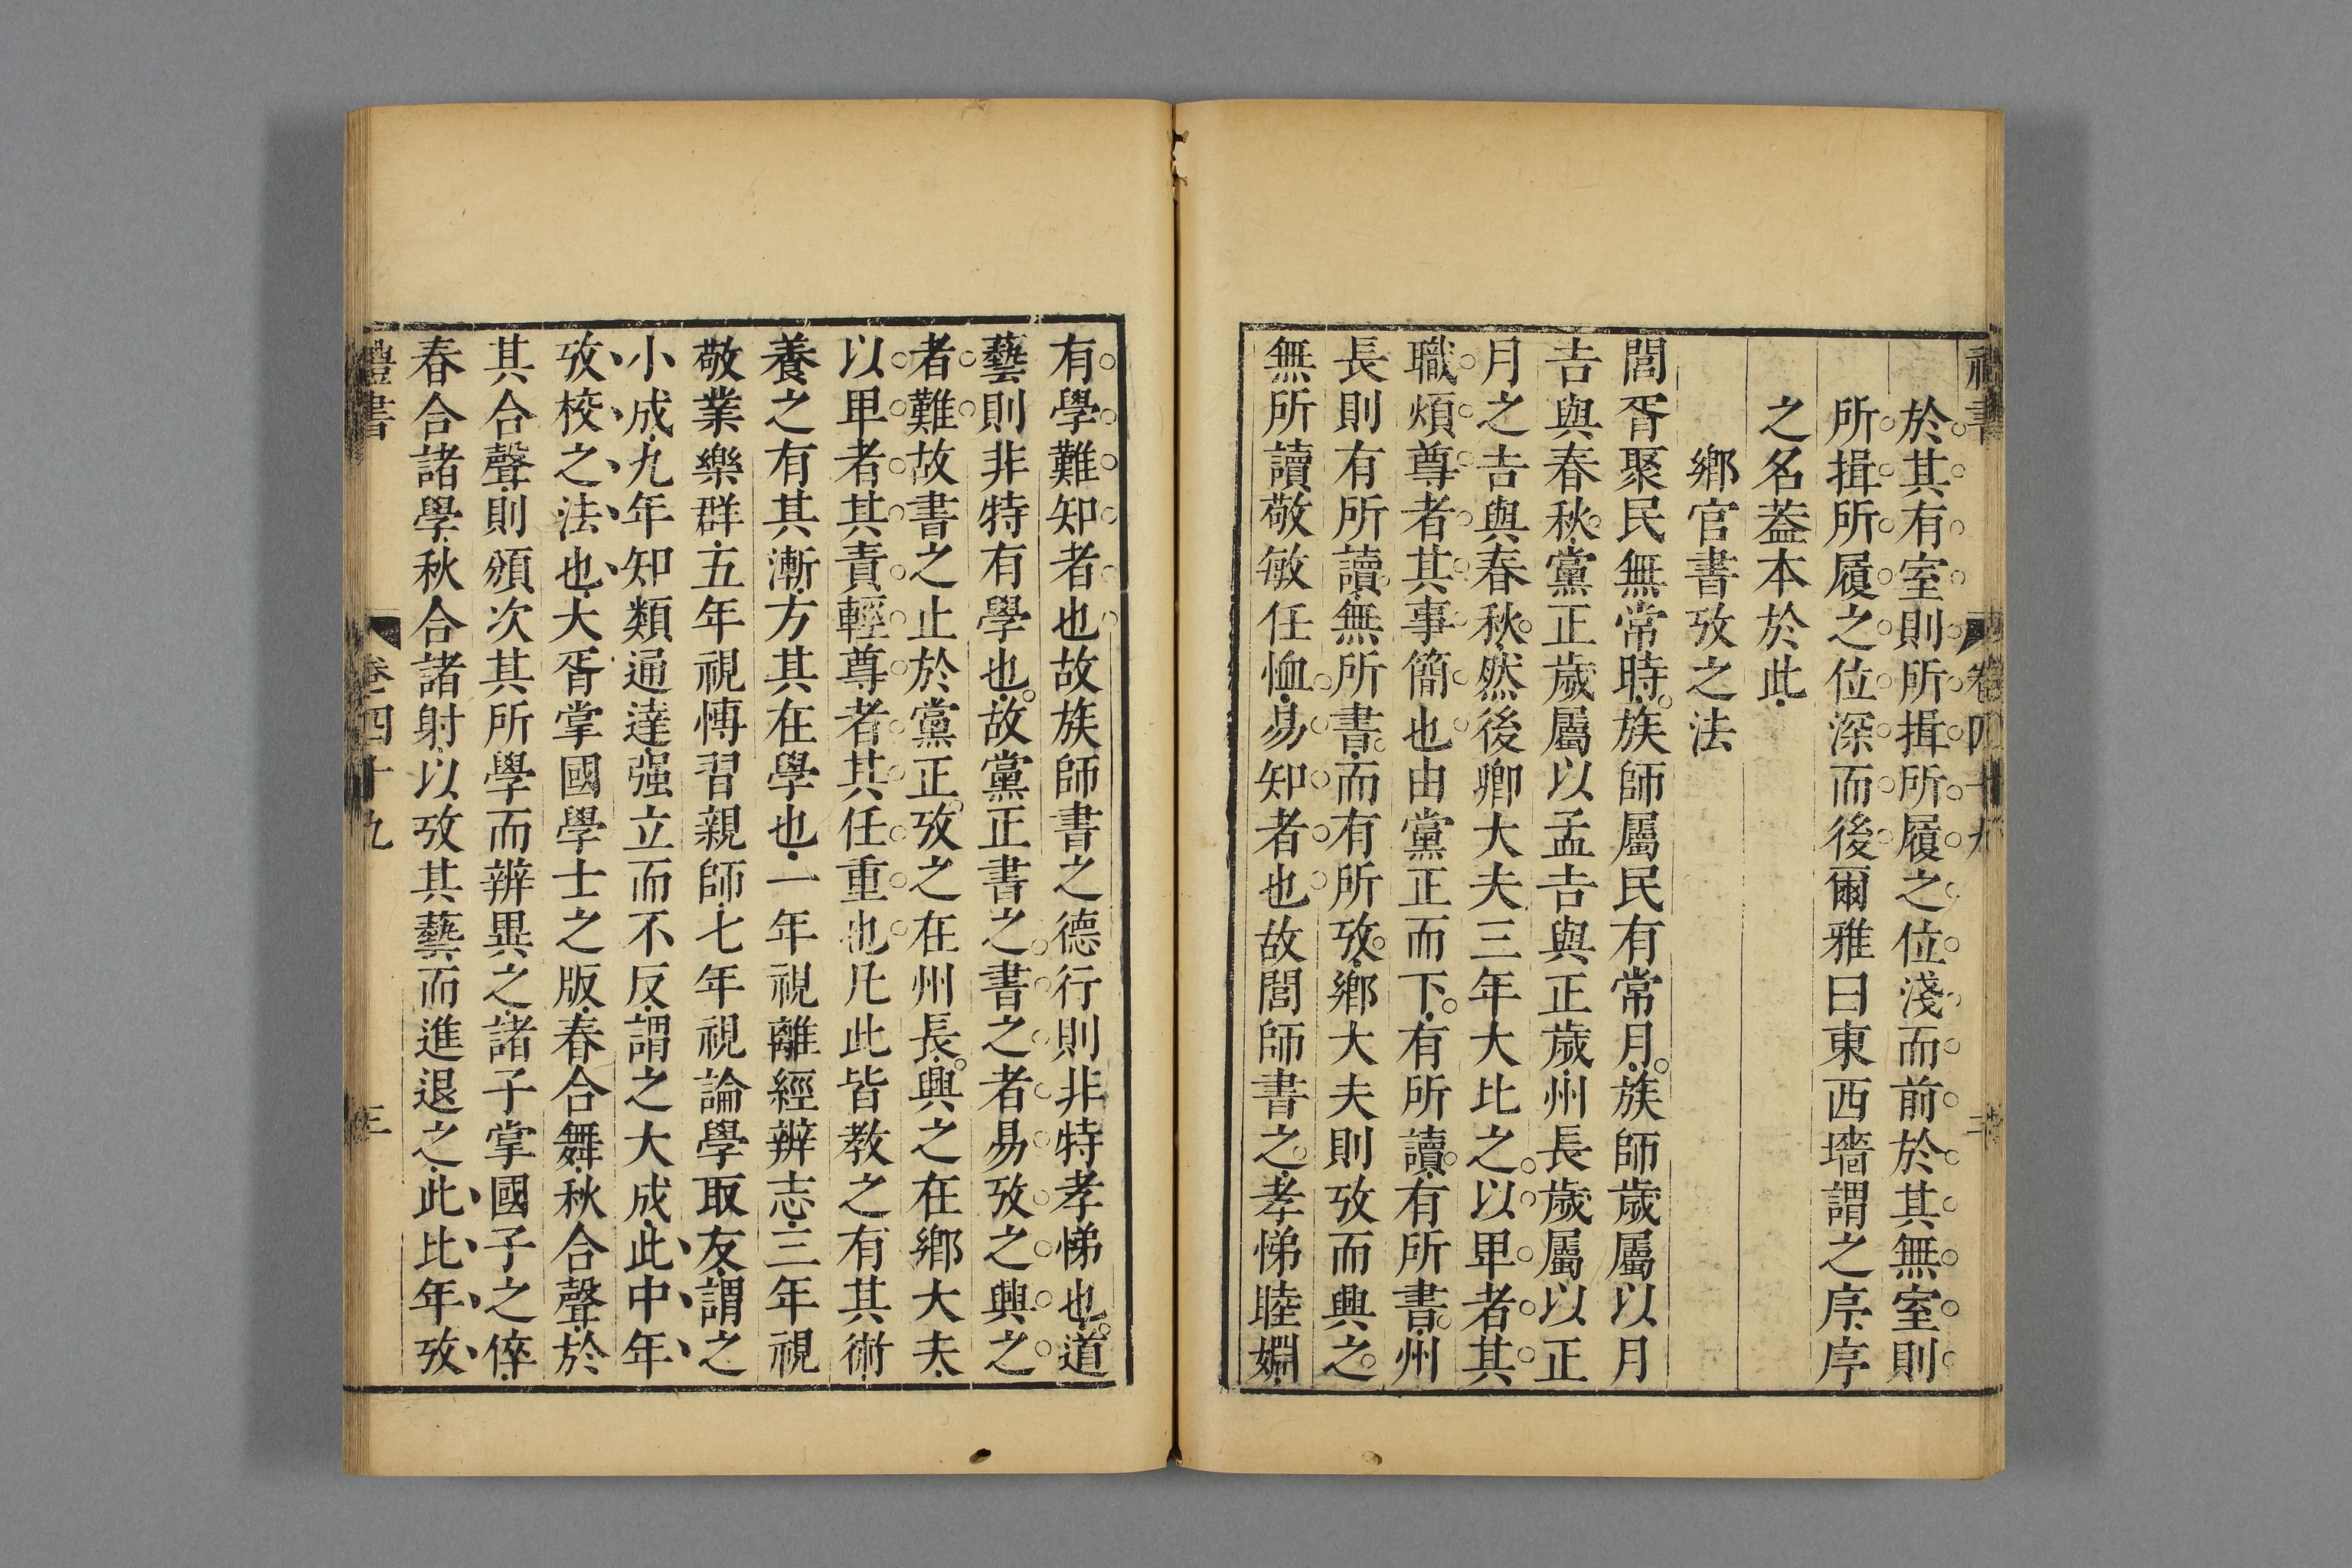 禮書 卷四十九 二
於其有室則所揖所履之位淺而前於其無室則
所揖所履之位深而後爾雅曰東西墻謂之序序
之名葢本於此
鄉官書攷之法
閭胥聚民無常時族師屬民有常月族師歲屬以月
吉與春秋黨正歲屬以孟吉與正歲州長歲屬以正
月之吉與春秋然後鄉大夫三年大比之以卑者其
職煩尊者其事簡也由黨正而下有所讀有所書州
長則有所讀無所書而有所攷鄉大夫則攷而興之
無所讀敬敏任恤易知者也故閭師書之孝悌睦婣
有學難知者也故族師書之德行則非特孝悌也道
藝則非特有學也故黨正書之書之者易攷之興之
者難故書之止於黨正攷之在州長興之在鄉大夫
以卑者其責輕尊者其任重也凡此皆教之有其術
養之有其漸方其在學也一年視離經辨志三年視
敬業樂群五年視慱習親師七年視論學取友謂之
小成九年知類通達强立而不反謂之大成此中年
攷校之法也大胥掌國學士之版春合舞秋合聲於
其合聲則頒次其所學而辨異之諸子掌國子之倅
春合諸學秋合諸射以攷其藝而進退之此比年攷
禮書 卷四十九 三